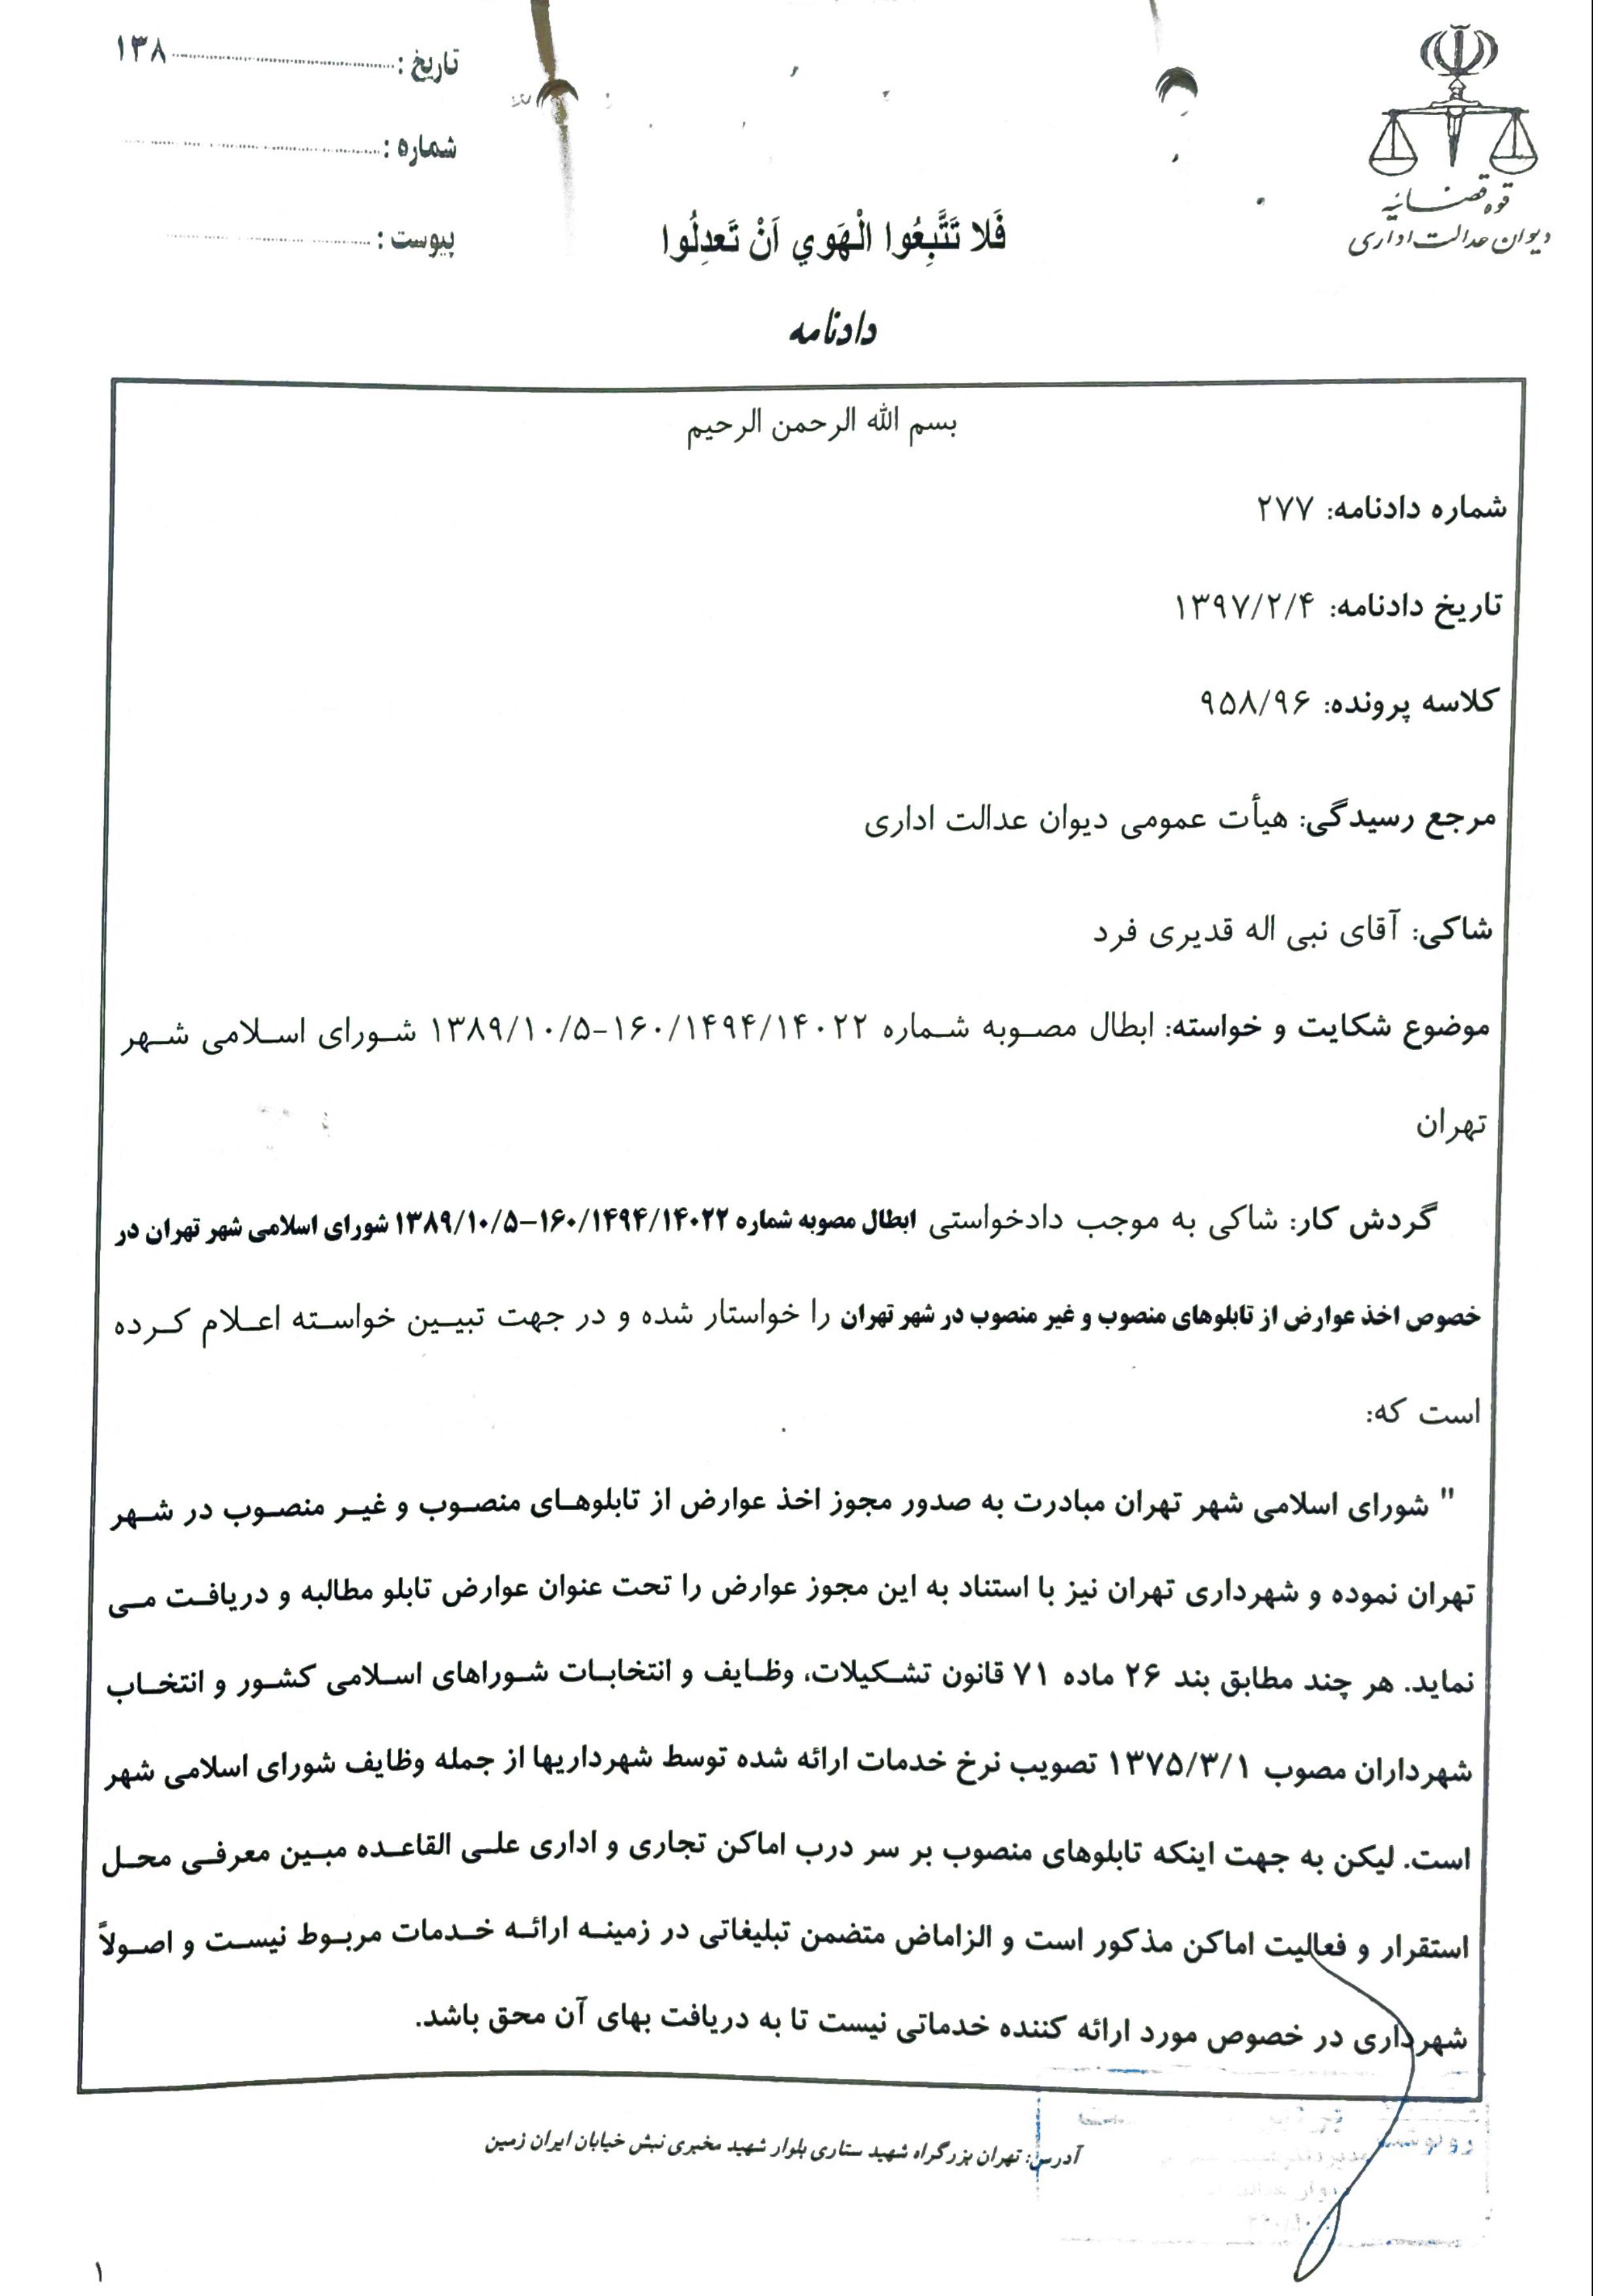 قوه قضائیه
دیوان عدالت اداری
تاریخ : ۱۳۸
شماره :
پیوست :
فَلا تَتَّبِعُوا الْهَوي اَنْ تَعدِلُوا
دادنامه
بسم الله الرحمن الرحیم
شماره دادنامه: ۲۷۷
تاریخ دادنامه: ۱۳۹۷/۲/۴
کلاسه پرونده: ۹۵۸/۹۶
مرجع رسیدگی: هیأت عمومی دیوان عدالت اداری
شاکی: آقای نبی اله قدیری فرد
موضوع شکایت و خواسته: ابطال مصوبه شماره ۱۶۰/۱۴۹۴/۱۴۰۲۲-۱۳۸۹/۱۰/۵ شورای اسلامی شهر
تهران
گردش کار: شاکی به موجب دادخواستی ابطال مصوبه شماره ۱۶۰/۱۴۹۴/۱۴۰۲۲-۱۳۸۹/۱۰/۵ شورای اسلامی شهر تهران در
خصوص اخذ عوارض از تابلوهای منصوب و غیر منصوب در شهر تهران را خواستار شده و در جهت تبیین خواسته اعلام کرده
است که:
" شورای اسلامی شهر تهران مبادرت به صدور مجوز اخذ عوارض از تابلوهای منصوب و غیر منصوب در شهر
تهران نموده و شهرداری تهران نیز با استناد به این مجوز عوارض را تحت عنوان عوارض تابلو مطالبه و دریافت می
نماید. هر چند مطابق بند ۲۶ ماده ۷۱ قانون تشکیلات، وظایف و انتخابات شوراهای اسلامی کشور و انتخاب
شهرداران مصوب ۱۳۷۵/۳/۱ تصویب نرخ خدمات ارائه شده توسط شهرداریها از جمله وظایف شورای اسلامی شهر
است. لیکن به جهت اینکه تابلوهای منصوب بر سر درب اماکن تجاری و اداری علی القاعده مبین معرفی محل
استقرار و فعالیت اماکن مذکور است و الزاماض متضمن تبلیغاتی در زمینه ارائه خدمات مربوط نیست و اصولاً
شهرداری در خصوص مورد ارائه کننده خدماتی نیست تا به دریافت بهای آن محق باشد.
آدرس: تهران بزرگراه شهید ستاری بلوار شهید مخبری نبش خیابان ایران زمین
۱